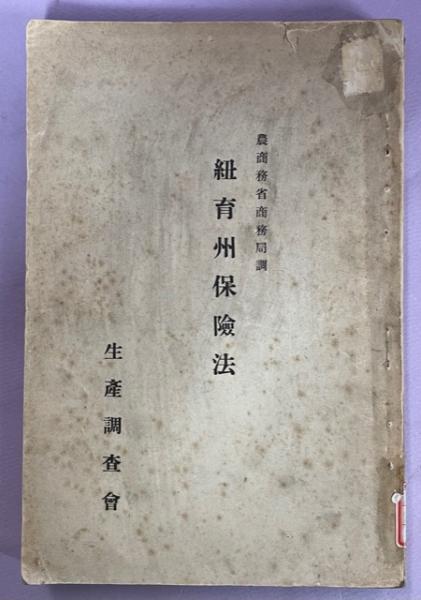 農商務省商務局調
紐育州保險法
生產調查會